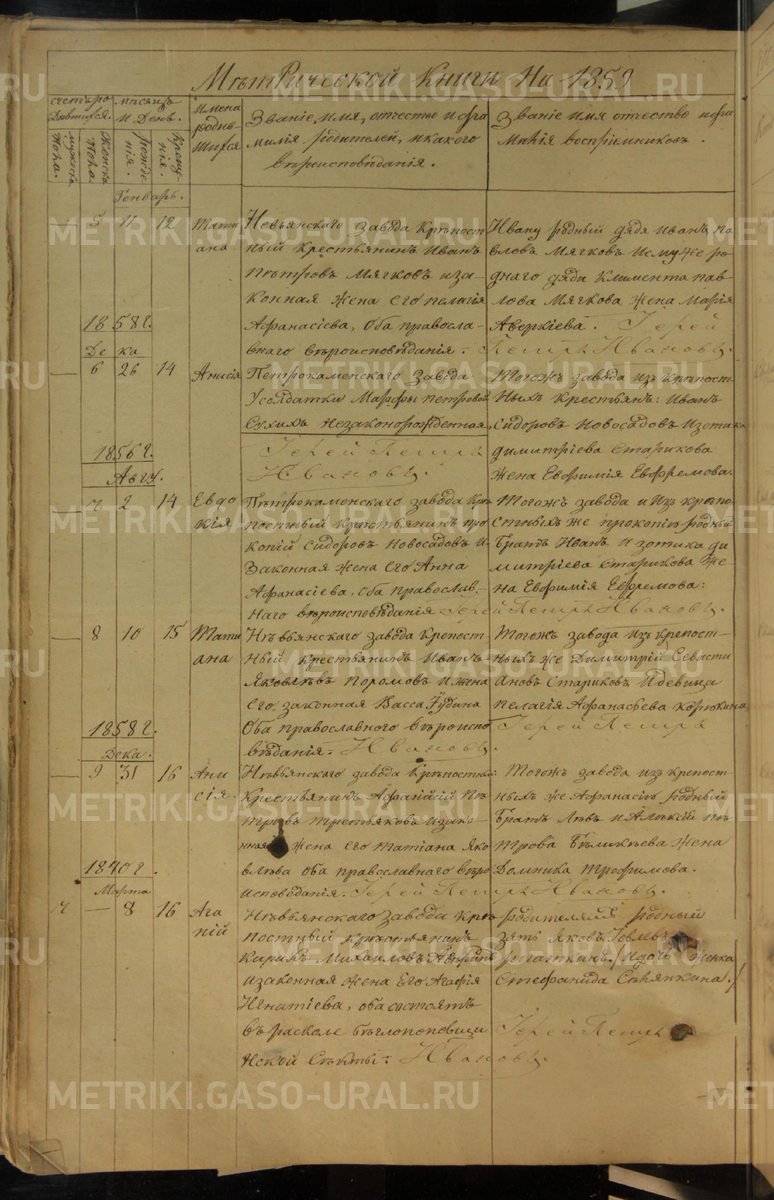 Метрической Книги На 1859
счетъ ро
дившихся.
мѣсяцъ
и День.
Имена
родив
шихся
Званіе имя, отчество и фа
милія родителей, и какого
вѣроисповѣданія.
Званіе имя отчество и фа
милія воспріемниковъ.
мужеска
пола.
Женска
пола.
рожде
нія.
Креще
нія.
Генварь.
5 11 12
Тати
ана
Невьянскаго завода Крѣпост
ный крестьянинъ Иванъ
Пѣтровъ Мягковъ и за-
конная жена его пелагія
Афанасіева, оба правосла-
внаго вѣроисповѣданія.
Ивану родный дядя Иванъ па
вловъ Мягковъ и ему же ро
днаго дяди Климента пав-
лова Мягкова жена Марія
Аверкіева. Іерей
Петръ Ивановъ.
1858 г.
Дека
— 6 26 14
Анисія
Петрокаменскаго завода
У солдатки Марфы петровой
Сухихъ Незаконорожденная
Іерей Петръ
Ивановъ.
Тогожъ завода изъ крѣпост
ныхъ крестьянъ: Иванъ
сидоровъ Новосадовъ и зотика
димитріева старикова
жена Евфимія Евфремова.
1856 г.
Авгу.
7 2 14
Евдо
кія
Пѣтрокаменскаго завода крѣ
постный крѣстьянинъ про
копій сидоровъ Новосадовъ и
Законная жена его Анна
Афанасіева, оба православ
наго вѣроисповѣданія Іерей Петръ Ивановъ.
Тогожъ завода и изъ крѣпо
стныхъ же прокопію родный
Братъ Иванъ и зотика ди
митріева старикова же
на Евфимія Ефремова:
— 8 10 15
Тати
ана
Нѣвьянскаго завода крепост
ный крестьянинъ Иванъ
Яковлѣвъ поромовъ и жена
его законная Васса Іудина
Оба православнаго вѣроиспо
вѣданія. Ивановъ.
Тогожъ завода изъ крепост-
ныхъ же Димитрій Севасти
ановъ стариковъ и девица
пелагія Афанасіева
Іерей Петръ
1858 г.
Дека.
— 9 31 16
Ани
сія.
Нѣвьянскаго завода крѣпостный
Крестьянинъ Афанасій Пѣ
тровъ Третьяковъ и зако-
нная жена его татіана Яко
влѣва оба православнаго вѣро
исповѣданія. Іерей Петръ Ивановъ.
Тогожъ завода изъ крепост-
ныхъ же Афанасію родный
Братъ Левъ и Алѣксій пѣ
трова жена
Домника Трофимова.
1840 г.
Марта
7 — 8 16
Ага
пій
Нѣвьянскаго завода крѣ
постный крѣстьянинъ
Михаиловъ
и законная жена Его Агафія
Игнатіева, оба состоятъ
въ расколе бѣглопоповщи
нской сѣкты. Ивановъ.
родителямъ родный
зять Яковъ
и дочь
Стефанида
Іерей Петръ
METRIKI.GASO-URAL.RU